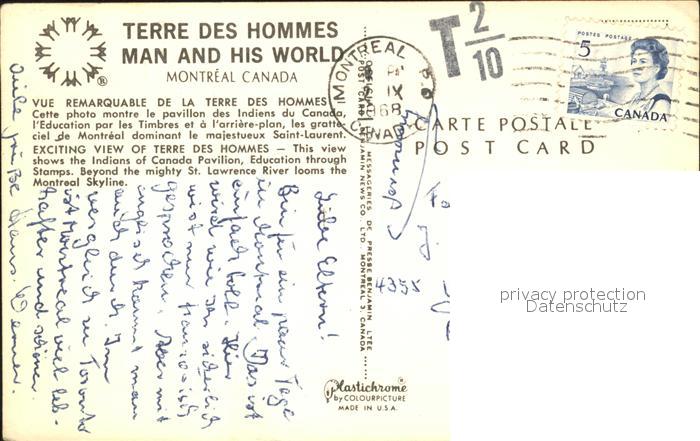 TERRE DES HOMMES
MAN AND HIS WORLD
MONTRÉAL CANADA
VUE REMARQUABLE DE LA TERRE DES HOMMES
Cette photo montre le pavillon des Indiens du Canada,
l'Éducation par les Timbres et à l'arrière-plan, les gratte-
ciel de Montréal dominant le majestueux Saint-Laurent.
EXCITING VIEW OF TERRE DES HOMMES — This view
shows the Indians of Canada Pavilion, Education through
Stamps. Beyond the mighty St. Lawrence River looms the
Montreal Skyline.
Liebe Eltern!
Bin für ein paar Tage
in Montreal. Das ist
einfach toll. Hier
wird wie Ihr sicherlich
wisst nur französisch
gesprochen. Aber mit
englisch kommt man
auch durch. Im
Vergleich zu Toronto
ist Montreal viel leb-
hafter und schöner.
Viele Grüße Hans Werner
POST CARD BENJAMIN NEWS CO., LTD., MONTREAL 3, CANADA
MESSAGERIES DE PRESSE BENJAMIN LTEE
Plastichrome®
by COLOURPICTURE
MADE IN U.S.A.
MONTREAL
PM
IX
1968
CANADA
T 2/10
POSTES POSTAGE
5
CANADA
CARTE POSTALE
POST CARD
Germany
435X
privacy protection
Datenschutz